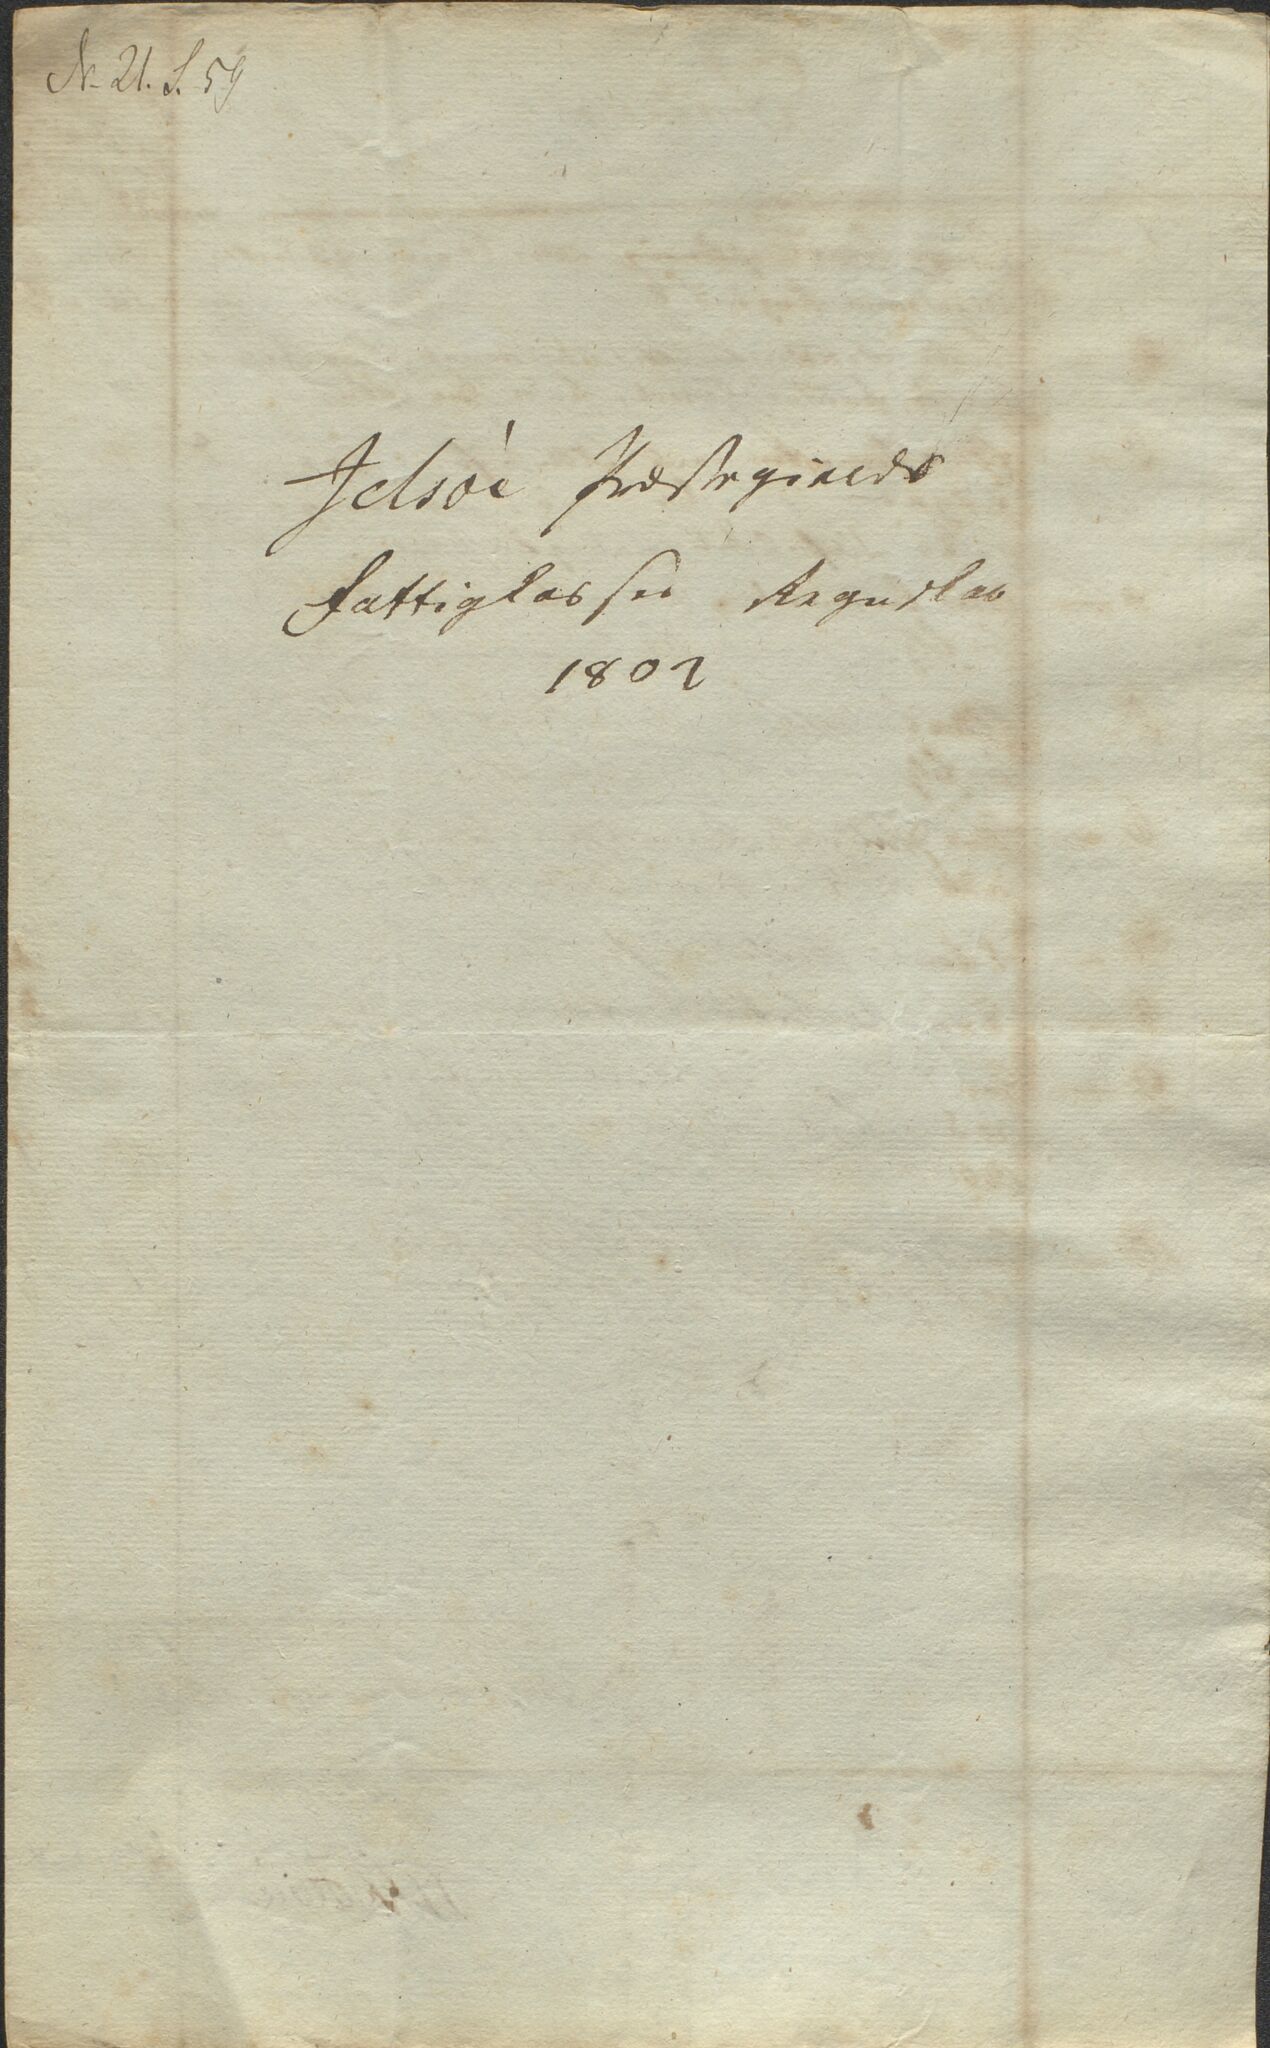 N. 21. S. 59
Jelsöe Præstegields
Fattigkasses Regnskab
1802